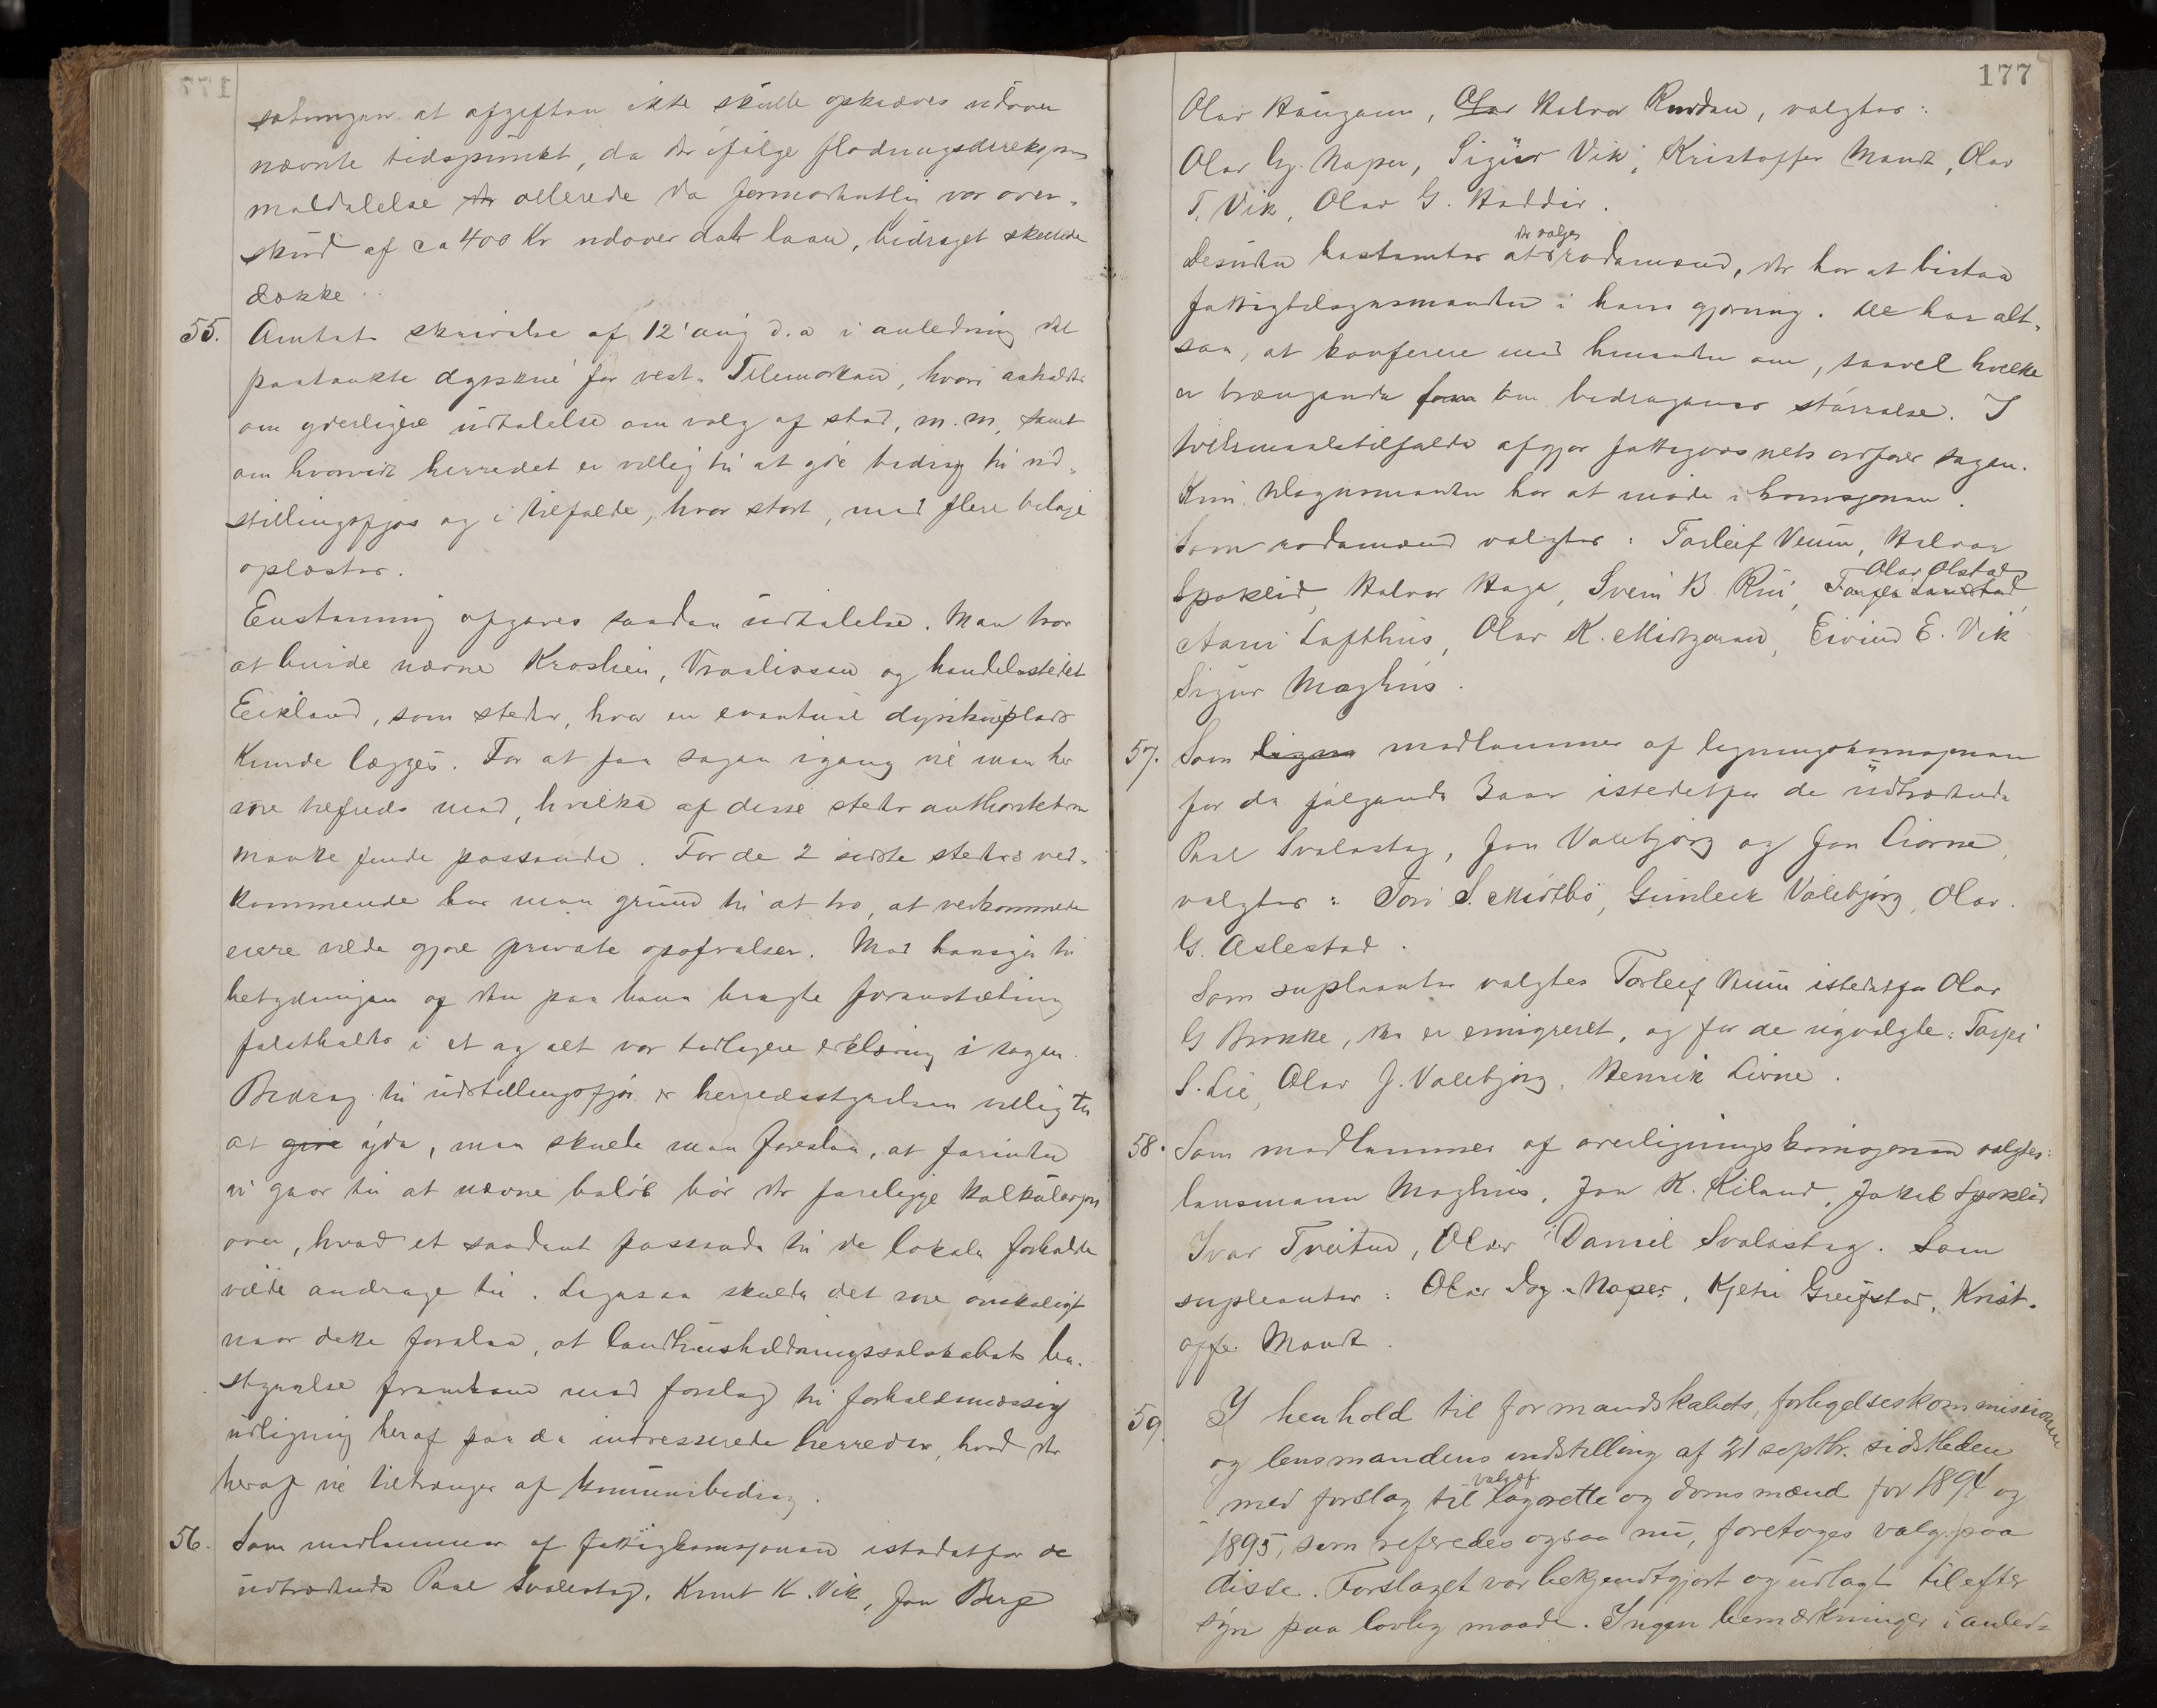 sætningen at afgiften ikke skulde opkræves udover
nævnte tidspunkt, da der ifølge flødningsdireksjons
meddelelse allerede da formodentlig var over-
skud af ca 400 Kr udover det laan, bidraget skulde
dække.
55. Amtets skrivelse af 12' aug d.a i anledning det
paatænkte dyrskue for vestr Telemarken, hvori anholdes
om yderligere udtalelse om valg af sted, m.m, samt
om hvorvidt herredet er villig til at gi bidrag til ud-
stillingsfjøs og i tilfælde, hvor stort, med flere bilage
oplæstes.
Enstemmig afgaves saadan udtalelse. Man tror
at burde nævne Kroshei, Vraaliosen og handelsstedet
Eikland, som steder, hvor en eventuel dyrskueplads
kunde lægges. For at faa sagen igang vil man her
være tilfreds med, hvilke af disse steder autoriteterne
maatte finde passende. For de 2 sidste steders ved-
kommende har man grund til at tro, at vedkommende
eiere vilde gjøre private opofrelser. Med hensyn til
betydningen og den paa bane bragte foranstaltning
fastholdes i et og alt vor tidligere erklæring i sagen.
Bidrag til udstillingsfjøs er herredsstyrelsen villig til
at give yde, men skulde man foreslaa, at forinden
vi gaar til at nævne beløb bør der foreligge kalkulasjon
over, hvad et saadant passende til de lokale forholde
vilde andrage til. Ligesaa skulde det være ønskeligt
naar dette forelaa, at landhusholdningsselskabets be-
styrelse fremkom med forslag til forholdsmæssig
udligning heraf paa de interesserede herreder, hvad der
heraf vil tiltrænges af kommunebidrag.
56. Som medlemmer af fattigkomisjonen istedetfor de
udtrædende Paal Svalestog, Knut K. Vik, Jon Berge
177
Olav Haugann, Olav Halvor Rundan, valgtes:
Olav Gj. Naper, Sigur Vik, Kristoffer Mandt, Olav
T. Vik, Olav G. Haddir.
der valges
Desuden bestemtes at rodemænd, der har at bistaa
fattigtilsynsmanden i hans gjerning. De har alt-
saa, at konferere med hmanden om, saavel hvilke
er trængende som om bidragenes størrelse. I
tvilsmaalstilfælde afgjør fattigvæsnets ordfører sagen.
Kun tilsynsmanden har at møde i komisjonen.
Som rodemænd valgtes: Torleif Veum, Halvor
Spokelid, Halvor Haga, Svein B. Rui,
Olav Olstad
Aani Lofthus, Olav K. Midtgarden, Eivind E. Vik
Sigur Moghus.
57. Som ligne medlemmer af ligningskomisjonen
for de følgende 3 aar istedetfor de udtrædende
Paal Svalastog, Jon Valebjørg og Jon Liorne,
valgtes: Tov S. Midtbø, Gunleik Valebjørg, Olav
G. Aslestad.
Som supleanter valgtes Torleif Veum istedetfor Olav
G Brokke, der er emigreret, og for de nyvalgte: Tarjei
S. Lie, Olav J. Valebjørg, Henrik Liorne.
58. Som medlemmer af overligningskomisjonen valgtes:
lensmann Moghus, Jon K. Kiland, Jakob Spokelid
Ivar Tveiten, Olav Daniel Svalastog. Som
supleanter: Olav Gj. Naper, Kjetil Greivstad, Krist-
offer Mandt.
59. I henhold til formandskabets, forligelseskommissionen
og lensmandens indstilling af 21 septbr. sidstleden
valg af
med forslag til lagrette og domsmænd for 1894 og
1895, som referedes ogsaa nu, foretoges valg paa
disse. Forslaget var bekjendtgjort og udlagt til efter
syn paa lovlig maade. Ingen bemærkninger i anled-